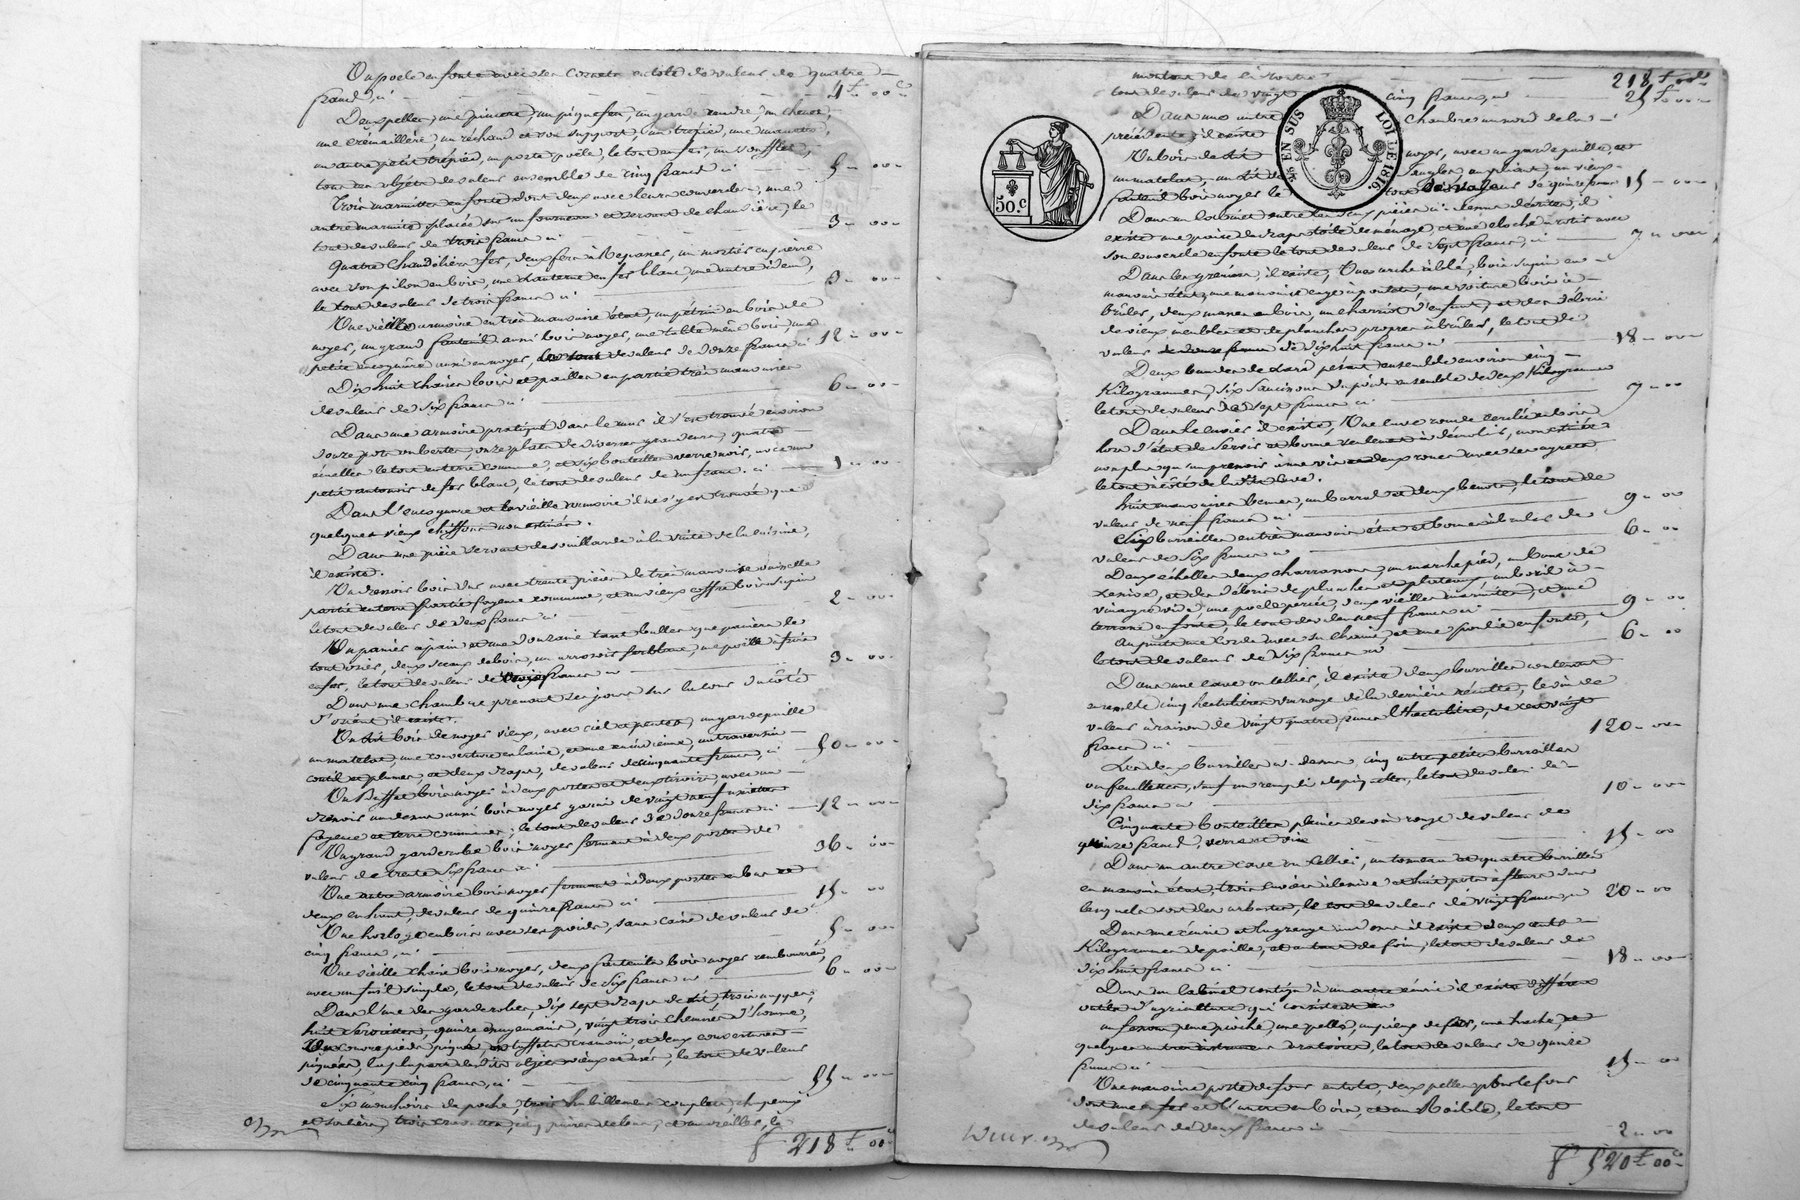 Un poele en fonte avec ses cornets en tôle de valeur de quatre
francs, ci 4f 00c
Deux pelles, une pincette, un piquefeu, un garde cendre, un chenet,
une crémaillère, un réchaud et son support, un trépied, une
un autre petit trépied, un porte poële, le tout en fer, un soufflet,
tous ces objets de valeur ensemble de cinq francs ci 5 - 00 -
Trois marmites en fonte dont deux avec leurs couvercles, une
autre marmite placée sur un fourneau et servant de chaudière, le
tout de valeur de trois francs ci 3 - 00 -
Quatre chandeliers fer, deux fers à repasser, un mortier en pierre
avec son pilon en bois, une lanterne en fer blanc, une autre idem,
le tout de valeur de trois francs ci 3 - 00 -
Une vieille armoire en très mauvais état, un pétrin en bois de
noyer, un grand fauteuil aussi bois noyer, une table même bois, une
petite encognure aussi en noyer, le tout de valeur de douze francs ci 12 - 00 -
Dix huit chaises bois et paille en partie très mauvaises
de valeur de six francs ci 6 - 00 -
Dans une armoire pratiquée dans le mur il s'est trouvé environ
douze pots ou bertes, onze plats de diverses grandeurs, quatre
écuelles le tout en terre commune, et six bouteilles verre noir, avec un
petit entonnoir de fer blanc, le tout de valeur de un franc ci 1 - 00 -
Dans l'encognure et la vieille armoire il ne s'y est trouvé que
quelques vieux chiffons non estimés.
Dans une pièce servant de souillarde à la suite de la cuisine,
il existe.
Un dressoir bois dur avec trente pièces de très mauvaise vaisselle
partie en terre partie fayence commune, et un vieux coffre bois sapin
le tout de valeur de deux francs ci 2 - 00 -
Un panier à pain et une douzaine tant bulles que paniers le
tout osier, deux sceaux de bois, un arrosoir fer blanc, une poële à frire
en fer, le tout de valeur de trois francs ci 3 - 00 -
Dans une chambre prenant ses jours sur la cour du côté
d'orient il existe.
Un lit bois de noyer vieux, avec ciel et pentes, un garde paille
un matelat, une couverture en laine, et une en indienne, un traversin
coutil et plumes, et deux draps, de valeur de cinquante francs, ci 50 - 00 -
Un Buffet bois noyer à deux portes et deux tiroirs, avec un
dressoir au dessus aussi bois noyer garni de vingt neuf assiettes
fayence et terre commune, le tout de valeur de douze francs ci 12 - 00 -
Un grand garderobe bois noyer fermant à deux portes de
valeur de trente six francs ci 36 - 00 -
Une autre armoire bois noyer fermant à deux portes en bas et
deux en haut, de valeur de quinze francs ci 15 - 00
Une horloge en bois avec ses poids, sans caisse de valeur de
cinq francs, ci 5 - 00 -
Une vieille chaise bois noyer, deux fauteuils bois noyer rembourrés,
avec un fusil simple, le tout de valeur de six francs ci 6 - 00 -
Dans l'une des garderobes, dix sept draps de lit, trois nappes,
huit serviettes, quinze essuyemains, vingt trois chemises d'homme,
un couvre pieds piqué, en taffetas cramoisi, et deux couvertures
piquées, la plupart desdits objets vieux et usés, le tout de valeur
de cinquante cinq francs, ci 55 - 00 -
Six mouchoirs de poche, trois habillements complets, chapeaux
et souliers, trois cravattes, cinq paires de bas, et
f 218f 00c
montant de ci contre 218f 00c
tout de valeur de vingt cinq francs, ci 25f 00
Dans une autre chambre au nord de la
précédente, il existe
Un bois de lit noyer, avec un garde paille, et
un matelat, un
bois noyer le tout de valeur de quinze francs 15 - 00
Dans un cabinet entre les deux pièces ci dessus décrites, il
existe une paire de draps toile de ménage, et une cloche à rotir avec
son couvercle en fonte le tout de valeur de sept francs, ci 7 - 00
Dans les greniers, il existe, Une arche à blé, bois sapin en
mauvais état, une mauvaise cage à poulets, une voiture bois à
brûler, deux manes en bois, un charriot d'enfant, et des débris
de vieux meubles et de planches propres à brûler, le tout de
valeur de douze francs de dix huit francs ci 18 - 00
Deux bandes de lard pesant ensemble environ cinq
kilogrammes, six saucissons du poids ensemble de deux kilogrammes
le tout de valeur de sept francs ci 7 - 00
Dans le cuvier il existe, Une cuve ronde cerclée en bois
hors d'état de servir et bonne seulement à démolir, non estimée
non plus qu'un pressoir à une vis et deux roues avec ses agrets
le tout à côté de ladite cuve.
huit mauvaises bennes, un barral et deux benots, le tout de
valeur de neuf francs ci 9 - 00
Six barriques en très mauvais état et bonnes à brûler de
valeur de six francs ci 6 - 00
Deux échelles, deux charrasons, un marche pied, un banc de
lessive, et des débris de planches et plateaux, un baril à
vinaigre vide, une poële percée, deux vieilles marmites, et une
terrasse en fonte, le tout de valeur neuf francs ci 9 - 00
un puits une corde avec sa chaine, et une poulie en fonte,
le tout de valeur de six francs ci 6 - 00
Dans une cave ou cellier, il existe deux barriques contenant
ensemble cinq hectolitres vin rouge de la dernière récolte, le vin de
valeur à raison de vingt quatre francs l'hectolitre, de cent vingt
francs ci 120 - 00
Les deux barriques ci dessus, cinq autres petites barriques
ou feuillettes, sauf une remplie de piquette, le tout de valeur de
dix francs ci 10 - 00
Cinquante bouteilles pleines de vin rouge de valeur de
quinze francs, verre et vin 15 - 00
Dans un autre cave ou cellier, un tonneau et quatre barriques
en mauvais état, trois cuviers à lessive et huit pots à fleurs dans
lesquels sont des arbustes, le tout de valeur de vingt francs, ci 20 - 00
Dans une écurie et la grange au dessus il existe deux cents
kilogrammes de paille, et autant de foin, le tout de valeur de
dix huit francs ci 18 - 00
Dans un cabinet contigu à une autre écurie il existe différents
outils d'agriculture qui consistent en
un une pioche, une pelle, un pieux de fer, une hache, et
quelques autres instruments aratoires, le tout de valeur de quinze
francs ci 15 - 00
Une mauvaise porte de four en tôle, deux pelles pour le four
dont une en fer et l'autre en bois, et un Roible, le tout
de valeur de deux francs ci 2 - 00
f 520f 00c
50.c
TIMB. EN SUS
LOI DE 1816.